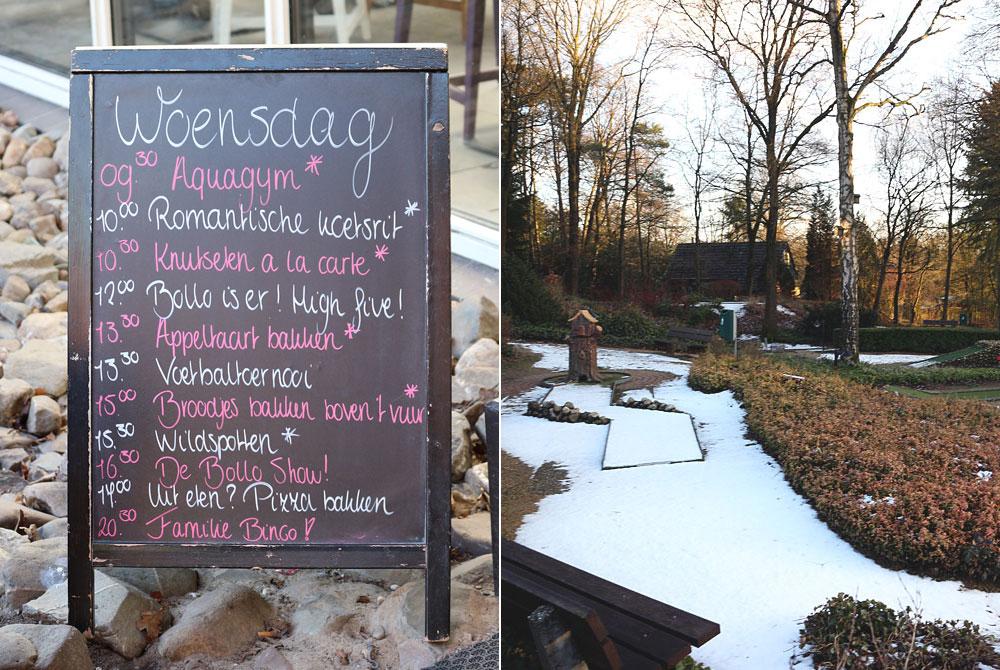 Woensdag
09.30 Aquagym *
10.00 Romantische koetsrit *
10.30 Knutselen a la carte *
12.00 Bollo is er! High five!
13.30 Appeltaart bakken *
13.30 Voetbaltoernooi
15.00 Broodjes bakken boven 't vuur *
15.30 Wildspotten *
16.30 De Bollo Show!
17.00 Uit eten? Pizza bakken
20.30 Familie Bingo!